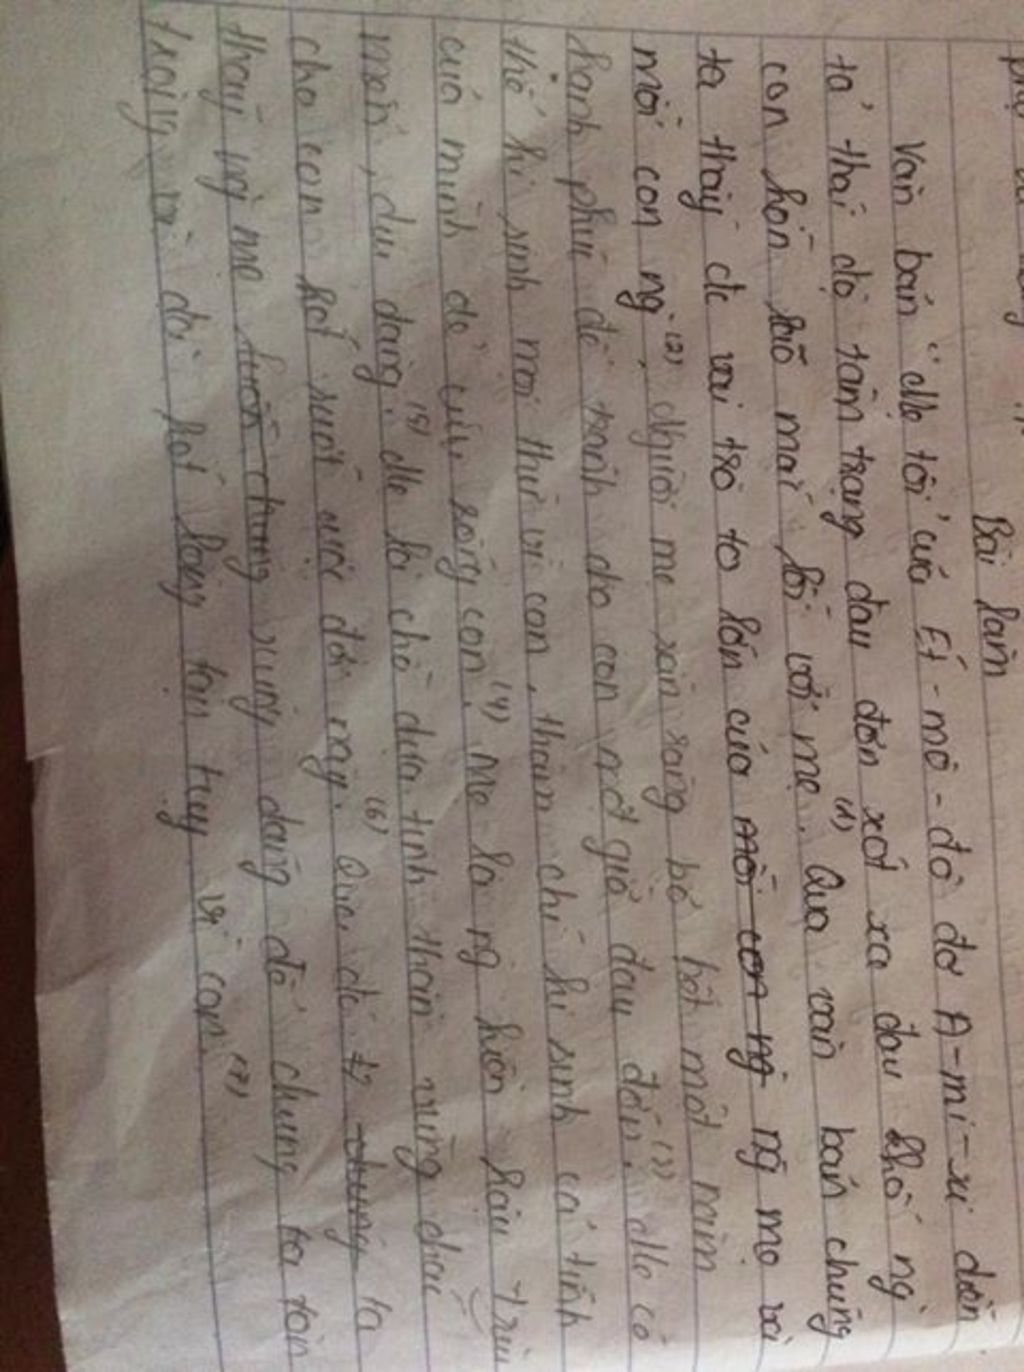 Bài làm
Văn bản "Mẹ tôi" của Ét-mô-đô đơ A-mi-xi diễn
tả thái độ tâm trạng đau đớn xót xa đau khổ ng
con hối lỗi mắc lỗi với mẹ. (1) Qua văn bản chúng
ta thấy đc vai trò to lớn của mỗi con ng ng mẹ với
mỗi con ng. (2) Người mẹ sẵn sàng bỏ hết một năm
hạnh phúc để tránh cho con một giờ đau đớn. (3) Mẹ có
thể hi sinh mọi thứ vì con, thậm chí hi sinh cả tính
của mình để cứu sống con. (4) Mẹ là ng hiền hậu trìu
mến, dịu dàng. (5) Mẹ là chỗ dựa tinh thần vững chắc
cho con hết suốt cuộc đời này. (6) Qua đó t? chúng ta
thấy ng mẹ luôn chung xứng đáng để chúng ta tôn
trọng vì đã hết lòng tận tụy vì con. (7)